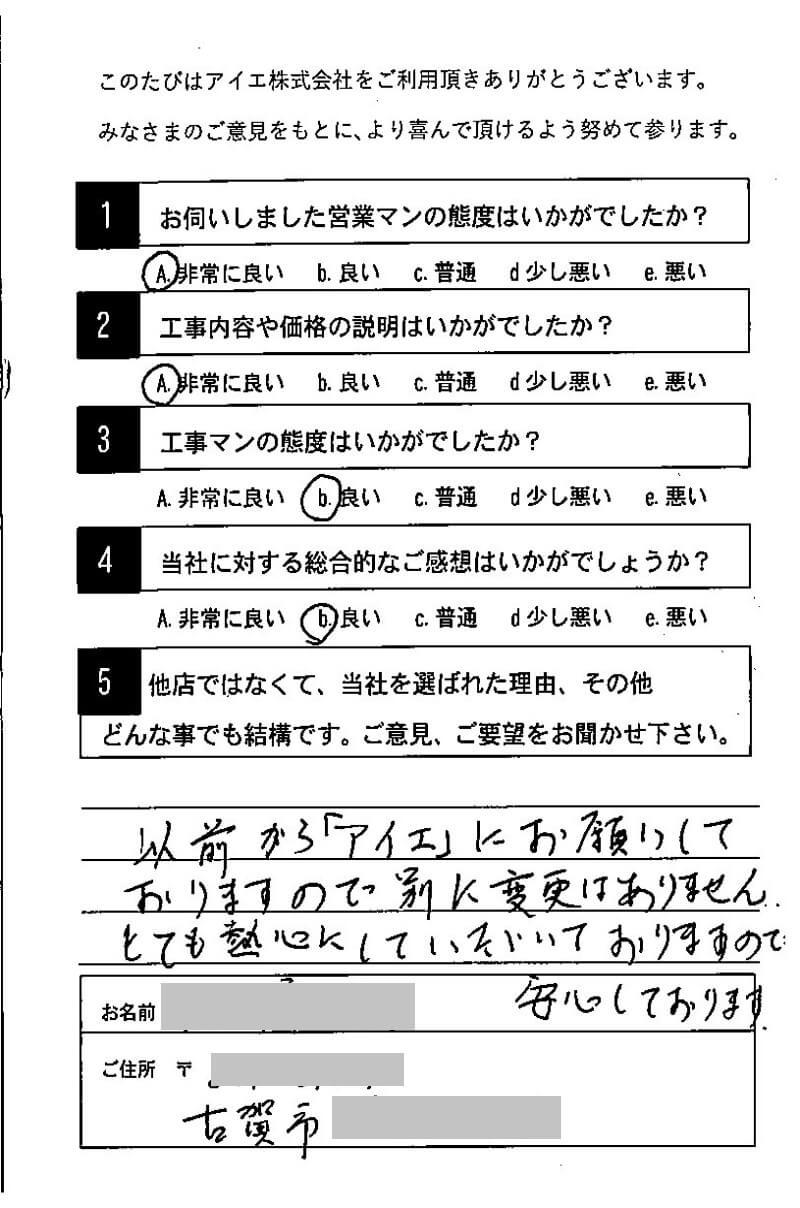 このたびはアイエ株式会社をご利用頂きありがとうございます。
みなさまのご意見をもとに、より喜んで頂けるよう努めて参ります。
1 お伺いしました営業マンの態度はいかがでしたか？
A. 非常に良い b. 良い c. 普通 d 少し悪い e. 悪い
2 工事内容や価格の説明はいかがでしたか？
A. 非常に良い b. 良い c. 普通 d 少し悪い e. 悪い
3 工事マンの態度はいかがでしたか？
A. 非常に良い b. 良い c. 普通 d 少し悪い e. 悪い
4 当社に対する総合的なご感想はいかがでしょうか？
A. 非常に良い b. 良い c. 普通 d 少し悪い e. 悪い
5 他店ではなくて、当社を選ばれた理由、その他
どんな事でも結構です。ご意見、ご要望をお聞かせ下さい。
以前から「アイエ」にお願いして
おりますので別に変更はありません。
とても熱心にしていただいておりますので
安心しております。
お名前
ご住所 〒
古賀市